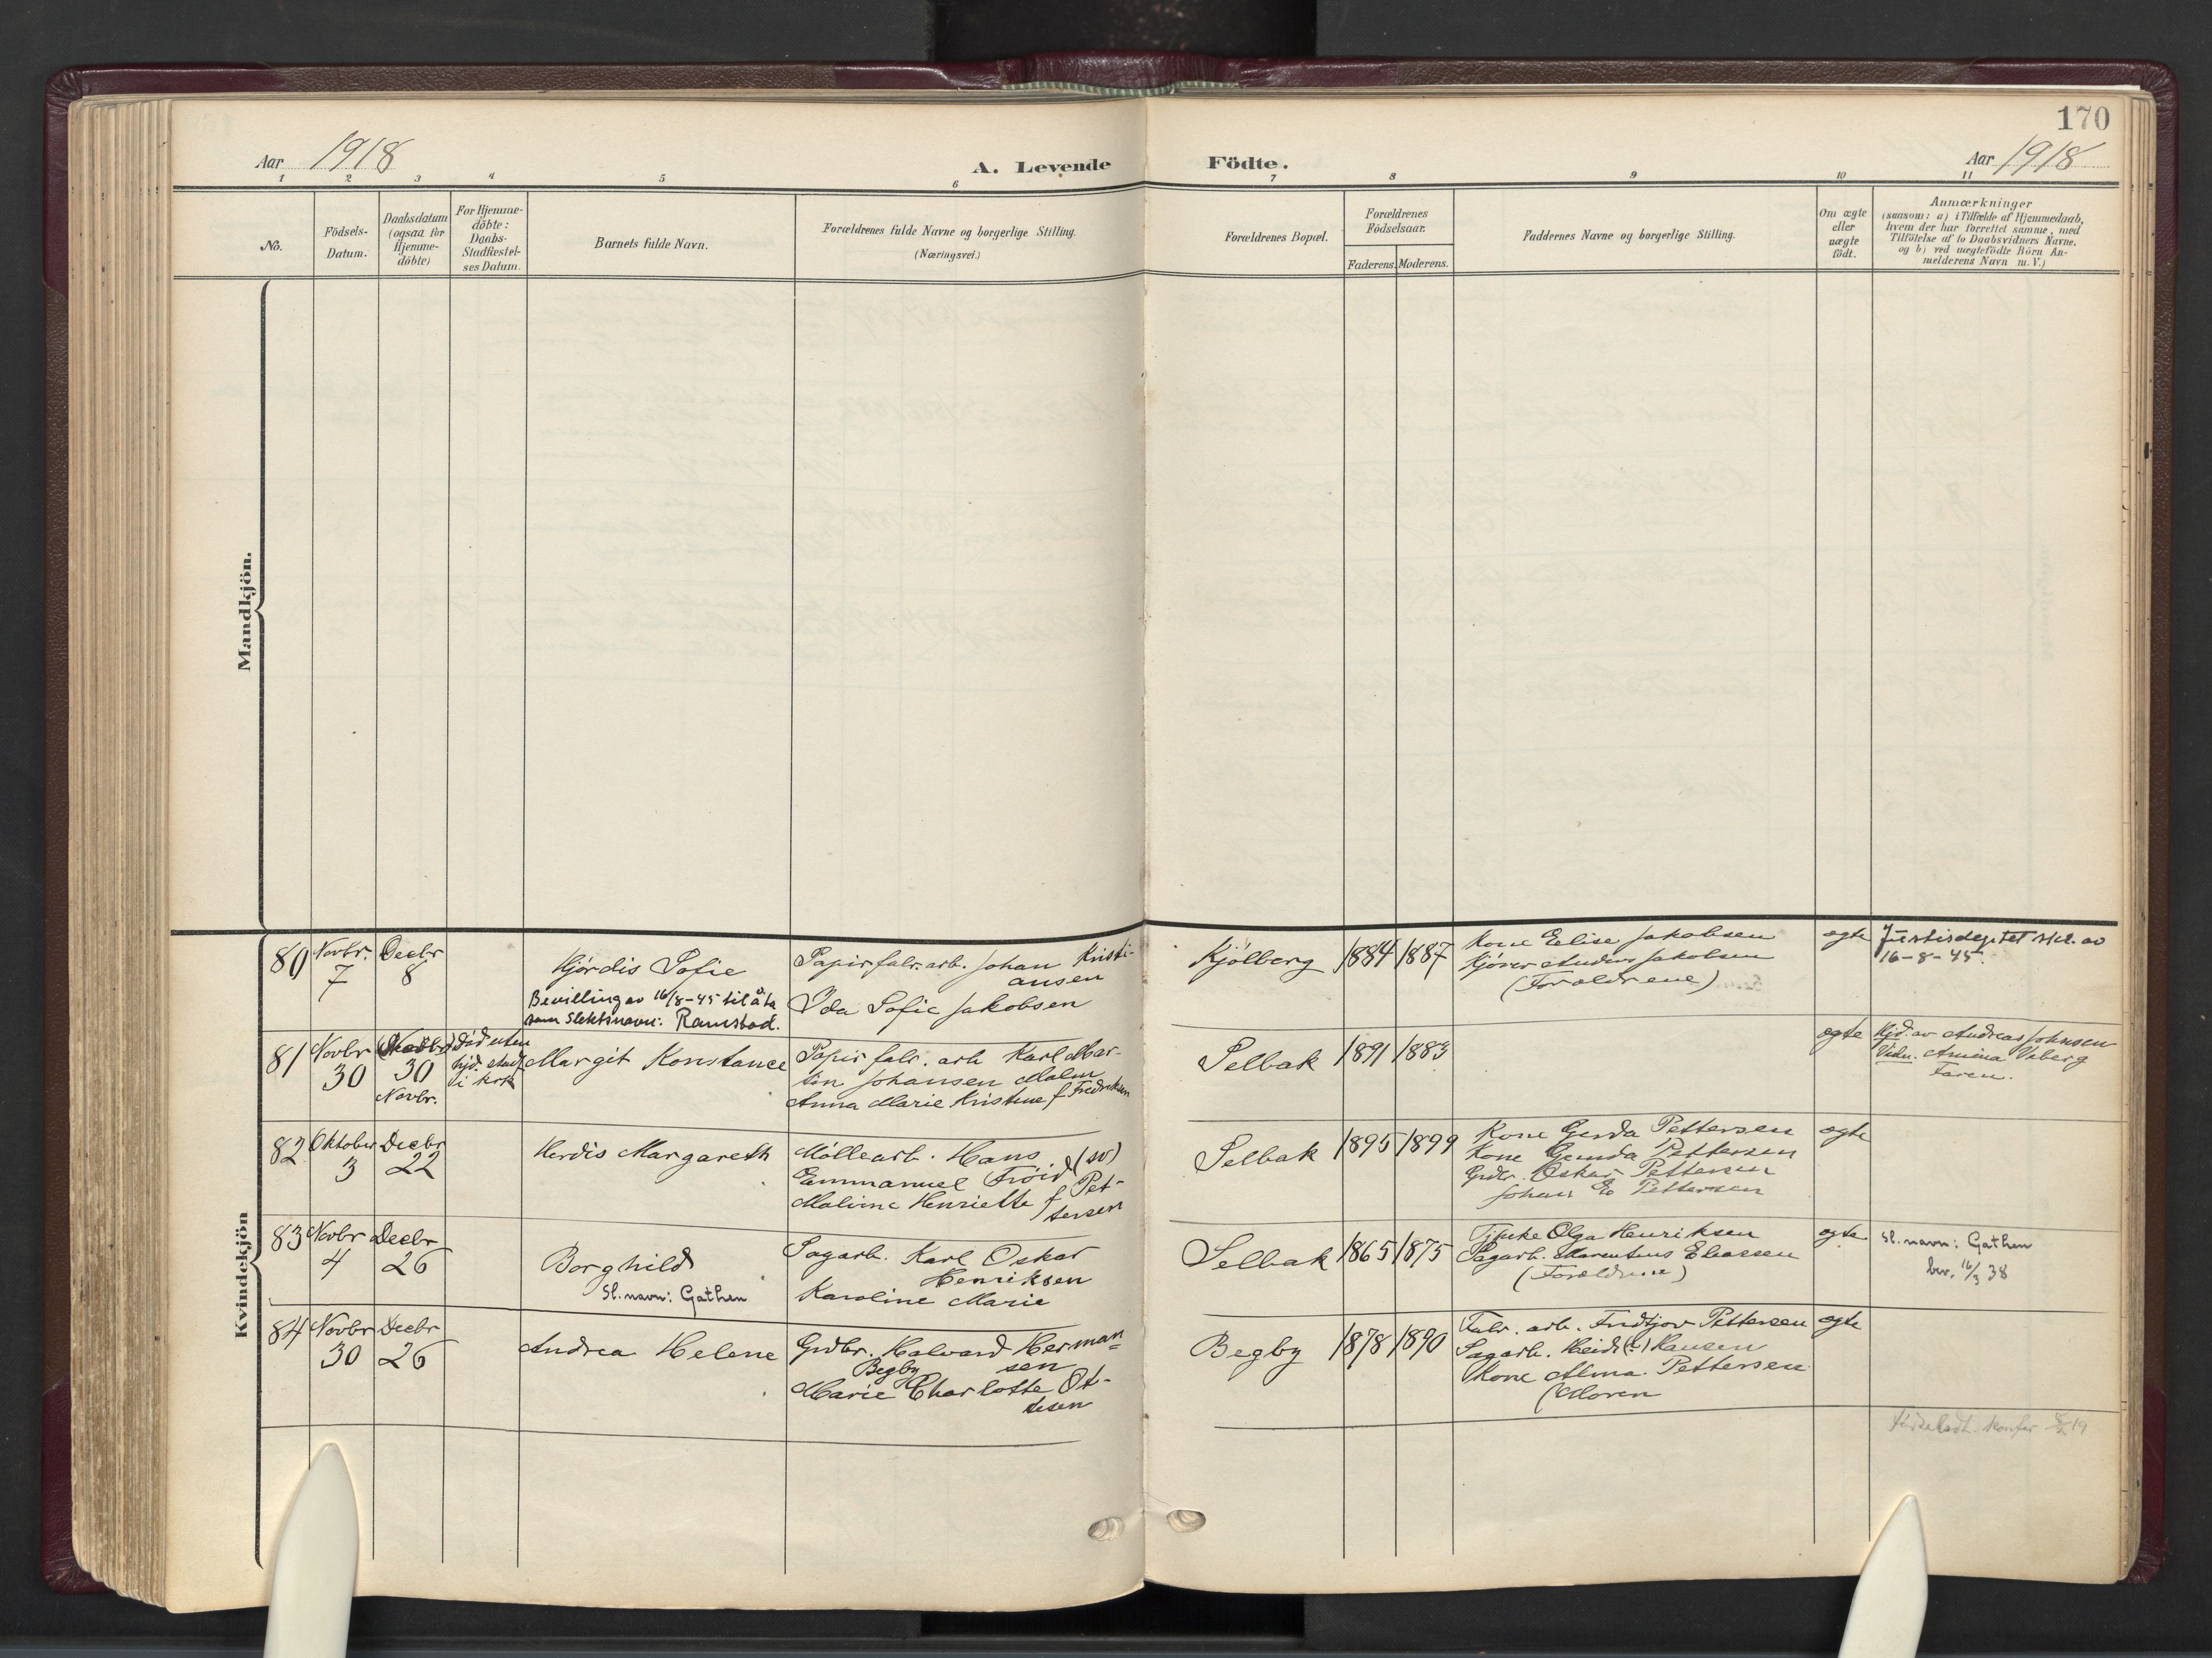 170
Aar 1918
A. Levende Födte.
Aar 1918
1 2 3 4 5 6 7 8 9 10 11
No.
Födsels-
Datum.
Daabsdatum
(ogsaa for
Hjemme-
döbte)
For Hjemme-
döbte:
Daabs-
Stadfæstel-
ses Datum.
Barnets fulde Navn.
Forældrenes fulde Navne og borgerlige Stilling.
(Næringsvei.)
Forældrenes Bopæl.
Forældrenes
Födselsaar.
Faderens. Moderens.
Faddernes Navne og borgerlige Stilling.
Om ægte
eller
uægte
födt.
Anmærkninger
(saasom: a) i Tilfælde af Hjemmedaab,
hvem der har forrettet samme, med
Tilföielse af to Daabsvidners Navne.
og b) ved uægtefödte Börn An-
melderens Navn m. V.)
Mandkjön.
Kvindekjön
80
Novbr.
7
Decbr
8
Hjørdis Sofie
Bevilling av 16/8-45 til å ta
som Slektsnavn: Ramstad.
Papirfabr. arb. Johan Kristi-
ansen
Ida Sofie Jakobsen
Kjölberg
1884
1887
Kone Elise Jakobsen
Kjører Anders Jakobsen
(Forældrene)
egte
Justisdeptet skr. av
16-8-45.
81
Novbr
30
30
Novbr.
Död uten
Margit Konstance
Papirfabr. arb Karl Mar-
tin Johansen Malm
Anna Marie Kristine f Fredriksen
Selbak
1891
1883
egte
Hjd. av Andreas Johnsen
Vidn. Amina Viberg
Faren.
82
Oktober
3
Decbr
22
Herdis Margareth
Möllearb. Hans
Emmanuel Fröid (sv)
Malime Henriette f Pet-
tersen
Selbak
1895
1899
Kone Gerda Pettersen
Kone Gunda Pettersen
Grdbr. Oskar Pettersen
Johan E. Pettersen
egte
83
Novbr
4
Decbr
26
Borghild
Sl. navn: Gathen
Sagarb. Karl Oskar
Henriksen
Karoline Marie
Selbak
1865
1875
Olga Henriksen
Sagarb. Marentius Eliassen
(Forældrene)
egte
Sl. navn: Gathen
bev. 16/3 38
84
Novbr
30
Decbr
26
Andrea Helene
Grdbr. Halvard Herman-
Begby sen
Marie Charlotte Ot-
tesen
Begby
1878
1890
Fabr. arb. Fridtjov Pettersen
Sagarb. Hansen
Kone Alma Pettersen
(Moren
egte